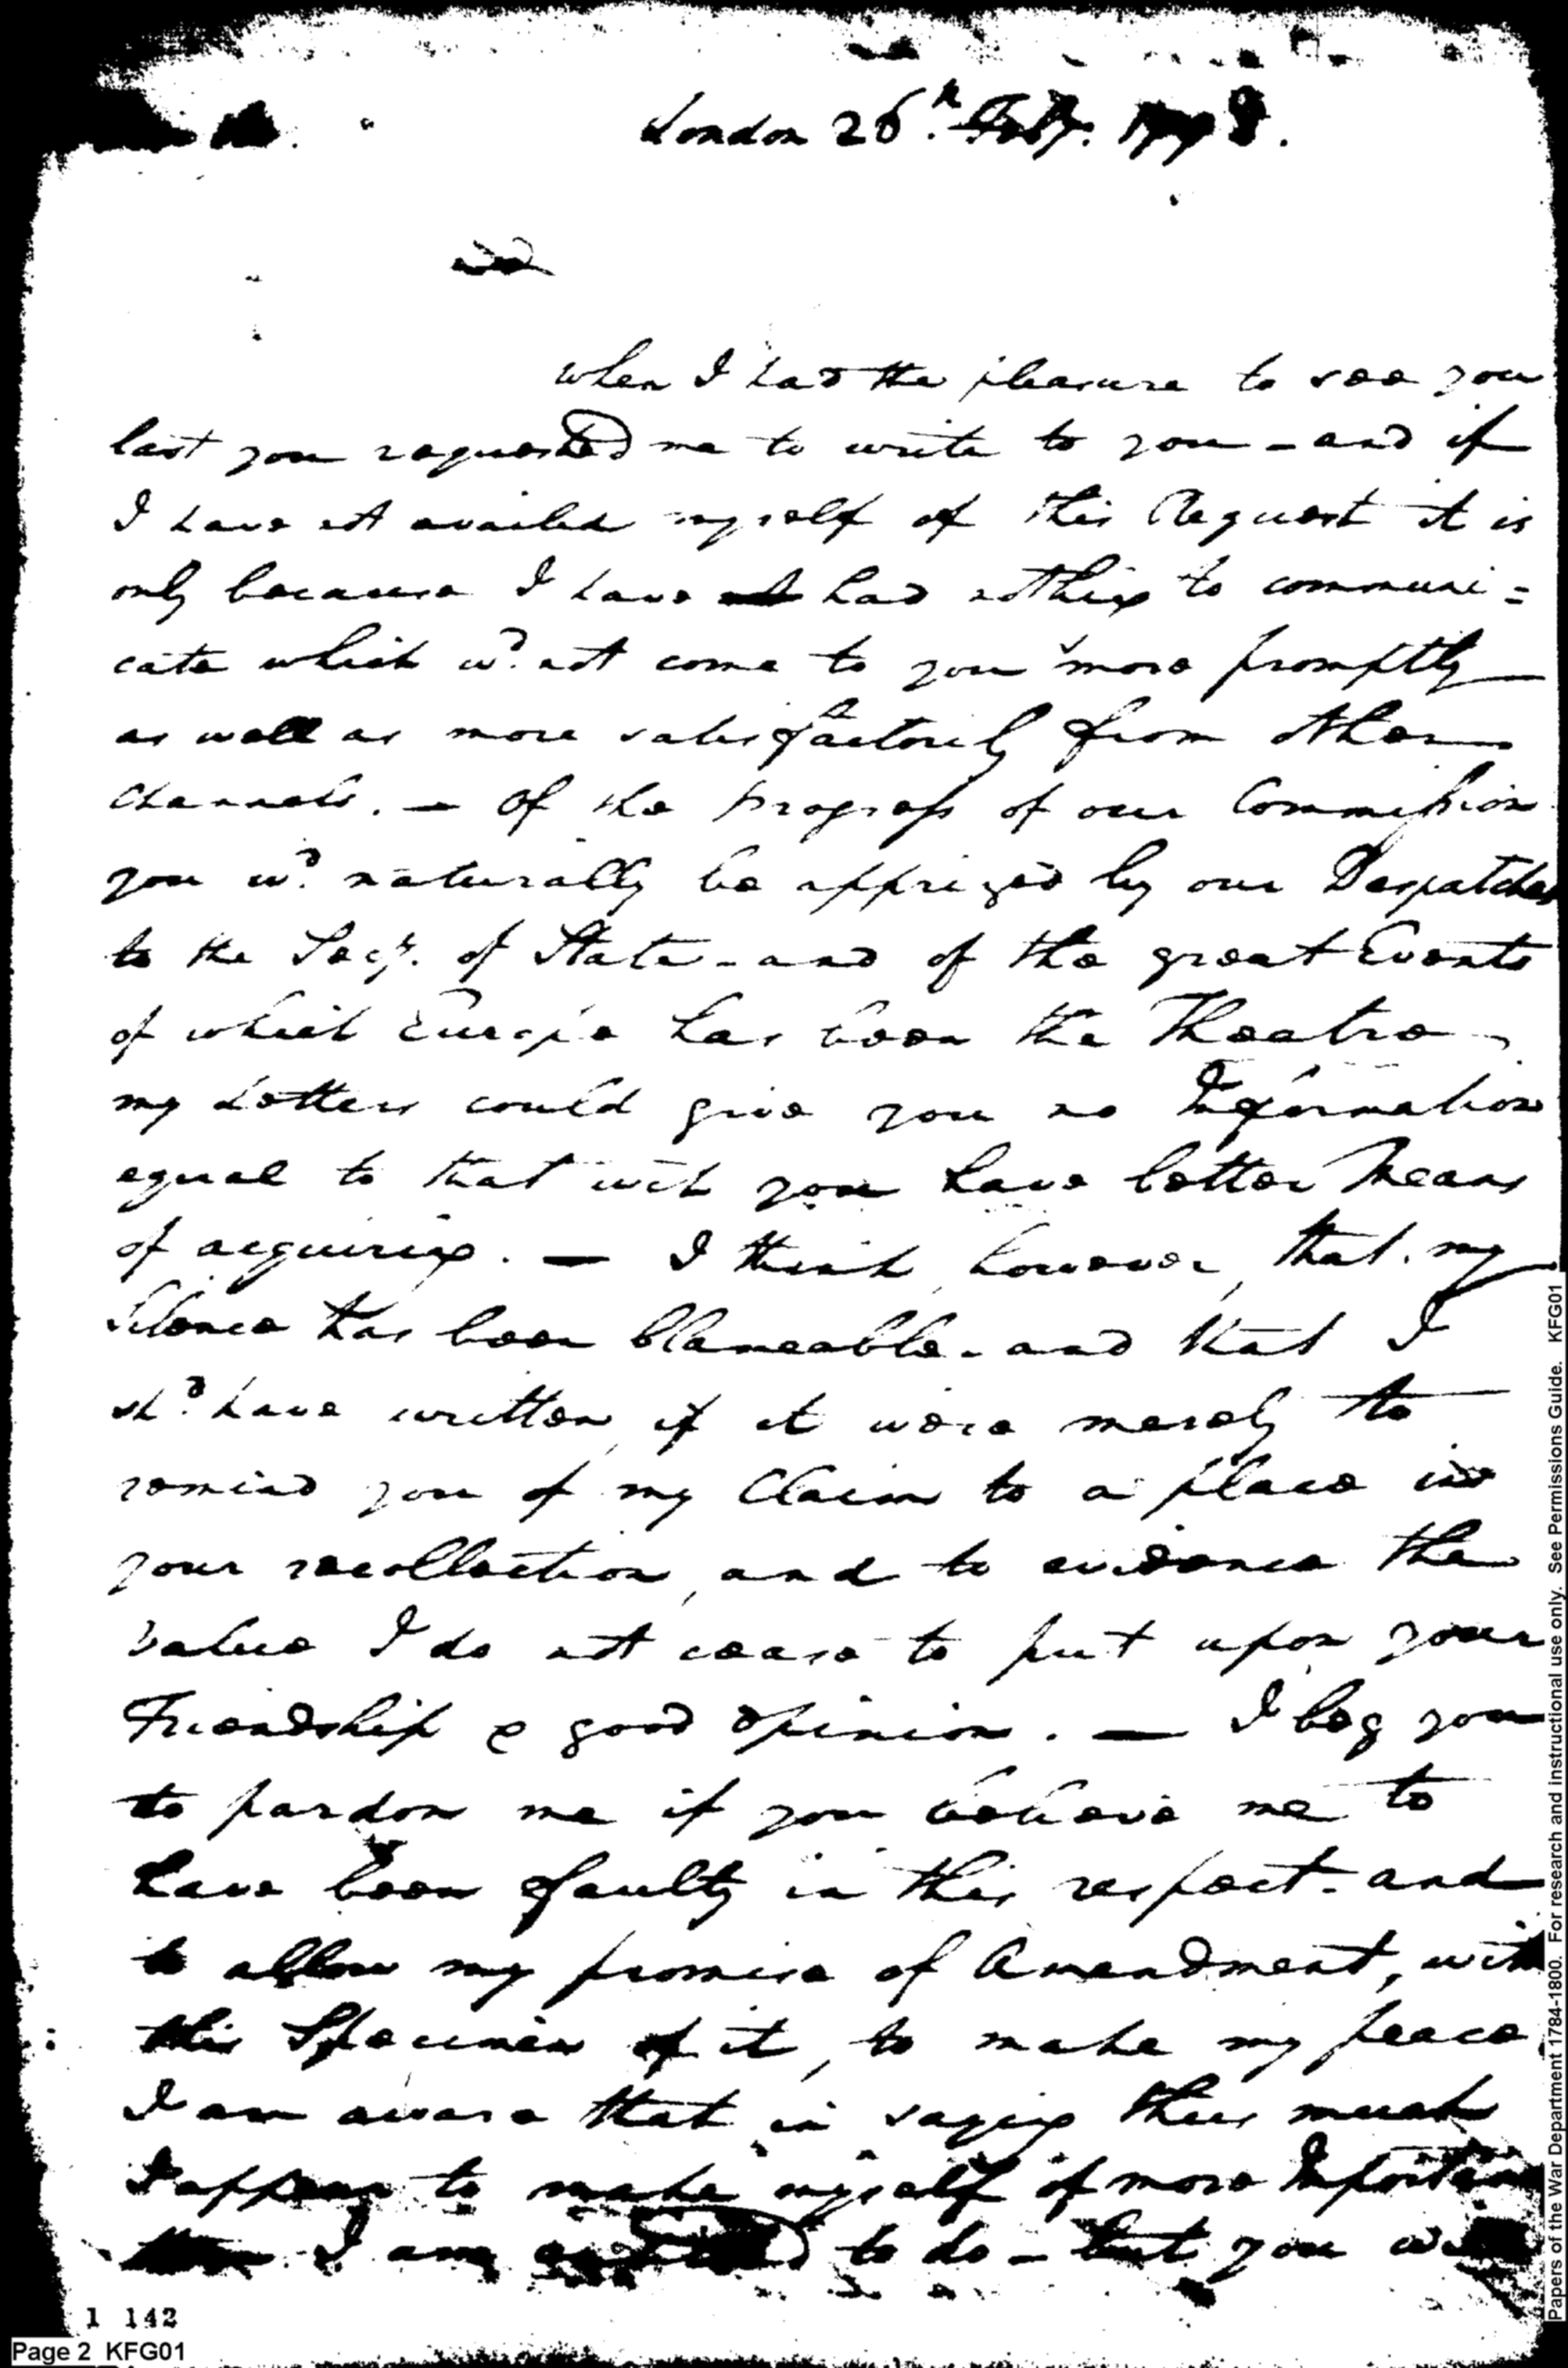 London 26.th Feby. 1798.
when I had the pleasure to see you
last you requested me to write to you - and if
I have not availed myself of this Request it is
only because I have had nothing to communi=
cate which wd. not come to you more promptly
as well as more satisfactorily from other
Channels. — Of the progress of our Commission
you wd. naturally be apprized by our Despatches
to the Secy. of State - and of the great Events
of which Europe has been the Theatre,
my Letters could give you no Information
equal to that wch you have better Means
of acquiring. — I think, however, that my
Silence has been blameable - and that I
shd. have written, if it were merely to
remind you of my Claim to a place in
your recollection, and to evidence the
value I do not cease to put upon your
Friendship & good opinion. — I beg you
to pardon me if you believe me to
have been faulty in this respect - and
to allow my promise of Amendment, with
this Specimen of it, to make my peace.
I am aware that in saying thus much
I appear to make myself of more Importance
than I am to do - but you
1 142
Page 2 KFG01
Papers of the War Department 1784-1800. For research and instructional use only. See Permissions Guide. KFG01